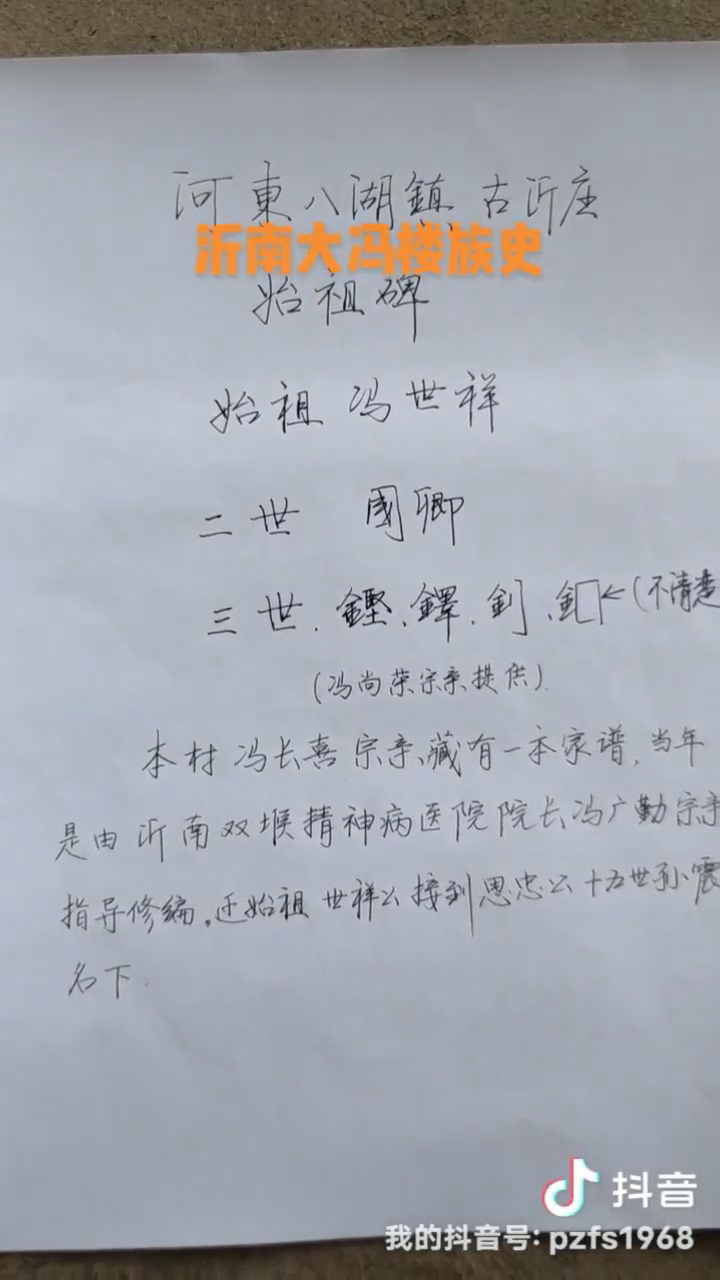 河東八湖鎮古沂庄
沂南大冯楼族史
始祖碑
始祖 冯世祥
二世 國卿
三世.鏗、鐸、钊、釒←(不清楚
(冯尚荣宗亲提供).
本村冯长喜宗亲藏有一本家谱,当年
是由沂南双堠精神病医院院长冯广勤宗亲
指导修编.迁始祖世祥公接到思忠公十五世孙震
名下.
抖音
我的抖音号: pzfs1968